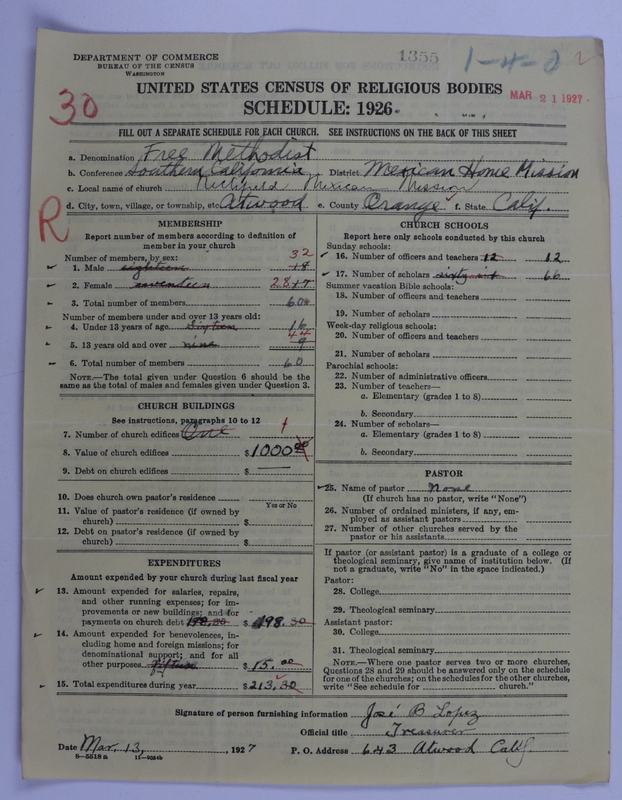 DEPARTMENT OF COMMERCE
BUREAU OF THE CENSUS
WASHINGTON
1355
1-4-2
30
UNITED STATES CENSUS OF RELIGIOUS BODIES
MAR 21 1927
SCHEDULE: 1926
FILL OUT A SEPARATE SCHEDULE FOR EACH CHURCH. SEE INSTRUCTIONS ON THE BACK OF THIS SHEET
a. Denomination Free Methodist
b. Conference Southern California District Mexican Home Mission
c. Local name of church Richfield Mexican Mission
d. City, town, village, or township, etc. Atwood e. County Orange f. State Calif.
R
MEMBERSHIP
Report number of members according to definition of
member in your church
Number of members, by sex:
1. Male eighteen 18 32
2. Female seventeen 28 17
3. Total number of members 60
Number of members under and over 13 years old:
4. Under 13 years of age sixteen 16
5. 13 years old and over nine 9 44
6. Total number of members 60
NOTE.—The total given under Question 6 should be the
same as the total of males and females given under Question 3.
CHURCH BUILDINGS
See instructions, paragraphs 10 to 12
7. Number of church edifices One 1
8. Value of church edifices $1000.00
9. Debt on church edifices $
10. Does church own pastor's residence
Yes or No
11. Value of pastor's residence (if owned by
church) $
12. Debt on pastor's residence (if owned by
church) $
EXPENDITURES
Amount expended by your church during last fiscal year
13. Amount expended for salaries, repairs,
and other running expenses; for im-
provements or new buildings; and for
payments on church debt 198.30 $198.30
14. Amount expended for benevolences, in-
cluding home and foreign missions; for
denominational support; and for all
other purposes fifteen $15.00
15. Total expenditures during year $213.30
CHURCH SCHOOLS
Report here only schools conducted by this church
Sunday schools:
16. Number of officers and teachers 12 12
17. Number of scholars sixty six 66
Summer vacation Bible schools:
18. Number of officers and teachers
19. Number of scholars
Week-day religious schools:
20. Number of officers and teachers
21. Number of scholars
Parochial schools:
22. Number of administrative officers
23. Number of teachers—
a. Elementary (grades 1 to 8)
b. Secondary
24. Number of scholars—
a. Elementary (grades 1 to 8)
b. Secondary
PASTOR
25. Name of pastor None
(If church has no pastor, write "None")
26. Number of ordained ministers, if any, em-
ployed as assistant pastors
27. Number of other churches served by the
pastor or his assistants
If pastor (or assistant pastor) is a graduate of a college or
theological seminary, give name of institution below. (If
not a graduate, write "No" in the space indicated.)
Pastor:
28. College
29. Theological seminary
Assistant pastor:
30. College
31. Theological seminary
NOTE.—Where one pastor serves two or more churches,
Questions 28 and 29 should be answered only on the schedule
for one of the churches; on the schedules for the other churches,
write "See schedule for church."
Signature of person furnishing information José B Lopez
Official title Treasurer
Date Mar. 13, 1927 P. O. Address 643 Atwood Calif
8—5518 a